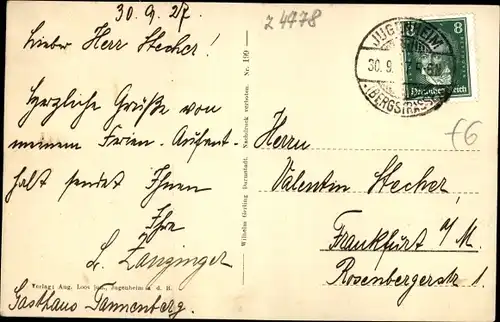 30.9.27.
Lieber Herr Stecher!
Herzliche Grüße von
meinem Ferien-Aufent-
halt sendet Ihnen
Ihr
L. Zänginger
Gasthaus Tannenberg.
Verlag: Aug. Loos jun., Jugenheim a. d. B.
Wilhelm Gerling Darmstadt. Nachdruck verboten. Nr. 199
z 4778
JUGENHEIM
30.9.
(BERGSTRASSE)
8
Deutsches Reich
€6
Herrn
Valentin Stecher,
Frankfurt a/M.
Rosenbergerstr 1.